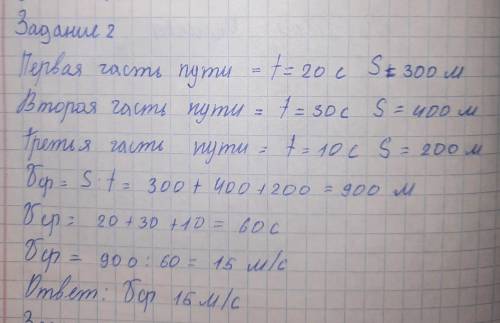 Задание 2
Первая часть пути = t = 20 с S = 300 м
Вторая часть пути = t = 30 с S = 400 м
Третья часть пути = t = 10 с S = 200 м
υср = S : t = 300 + 400 + 200 = 900 м
υср = 20 + 30 + 10 = 60 с
υср = 900 : 60 = 15 м/с
Ответ: υср 15 м/с